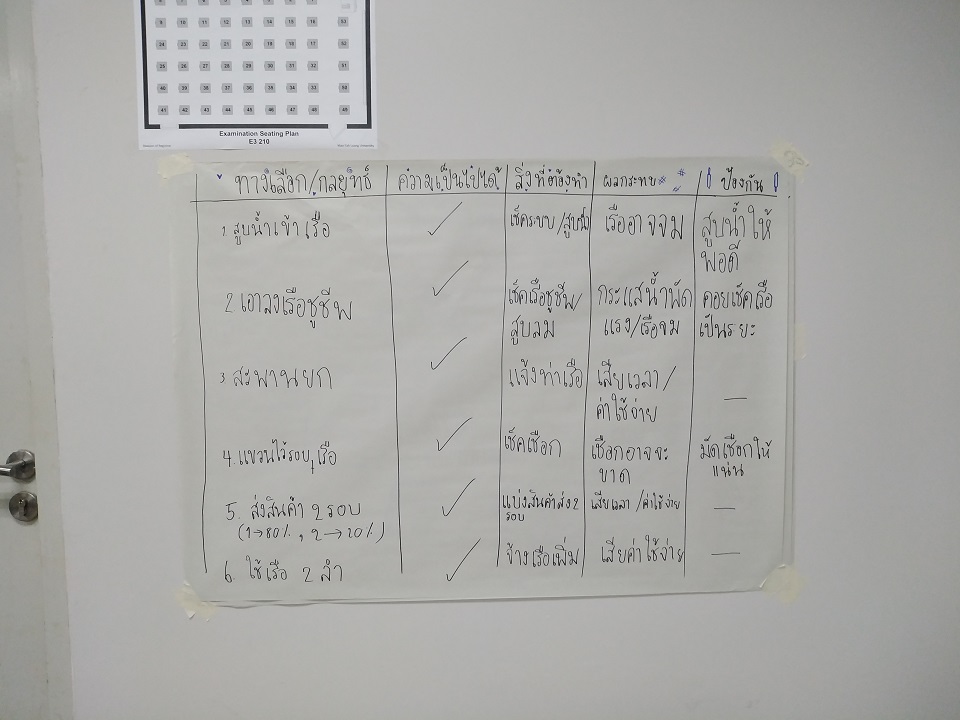 9 10 11 12 13 14 15 16 53
24 23 22 21 20 19 18 17 52
25 26 27 28 29 30 31 32 51
40 39 38 37 36 35 34 33 50
41 42 43 44 45 46 47 48 49
Examination Seating Plan
E3 210
ทางเลือก/กลยุทธ์ ความเป็นไปได้ สิ่งที่ต้องทำ ผลกระทบ ป้องกัน
1. สูบน้ำเข้าเรือ ✓ เช็คระบบ/สูบน้ำ เรืออาจจม สูบน้ำให้
พอดี
2. เอาลงเรือชูชีพ ✓ เช็คเรือชูชีพ/ กระแสน้ำพัด คอยเช็คเรือ
สูบลม แรง/เรือจม เป็นระยะ
3. สะพานยก ✓ แจ้งท่าเรือ เสียเวลา/ —
ค่าใช้จ่าย
4. แขวนไว้รอบๆเรือ ✓ เช็คเชือก เชือกอาจจะ มัดเชือกให้
ขาด แน่น
5. ส่งสินค้า 2 รอบ ✓ แบ่งสินค้าส่ง 2 เสียเวลา/ค่าใช้จ่าย —
รอบ
(1→80%, 2→20%)
6. ใช้เรือ 2 ลำ ✓ จ้างเรือเพิ่ม เสียค่าใช้จ่าย —